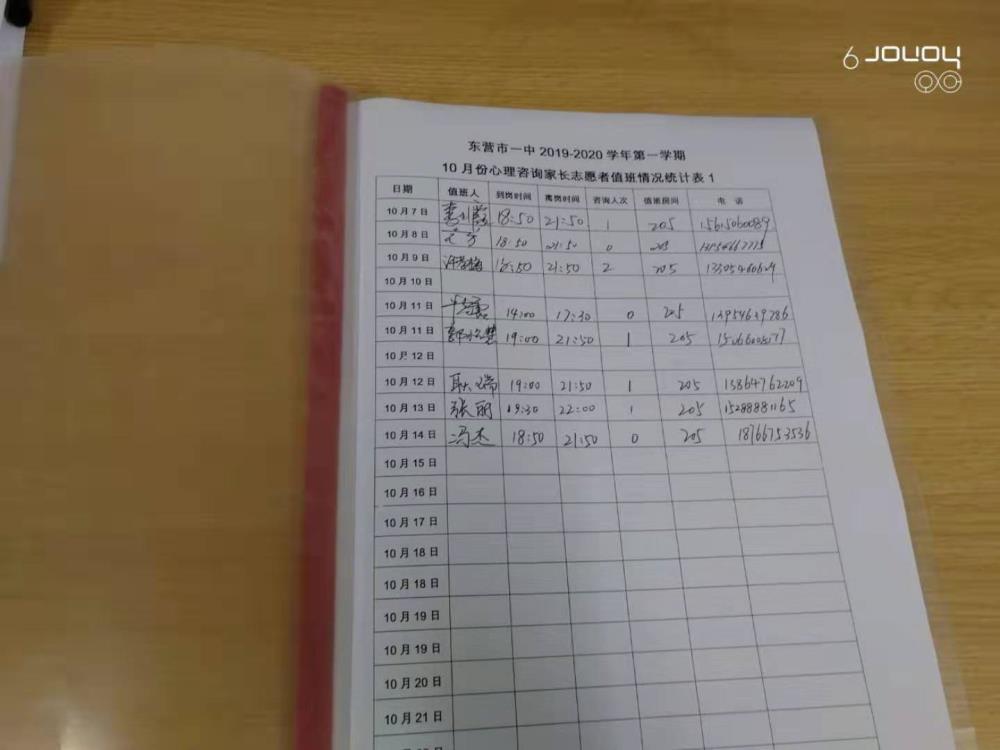 6 JOVOY
东营市一中 2019-2020 学年第一学期
10 月份心理咨询家长志愿者值班情况统计表 1
日期 值班人 到岗时间 离岗时间 咨询人次 值班房间 电 话
10 月 7 日 18:50 21:50 1 205
10 月 8 日 18:50 21:50 0 205
10 月 9 日 18:50 21:50 2 205
10 月 10 日
10 月 11 日 14:00 17:30 0 205 13954639786
10 月 11 日 19:00 21:50 1 205
10 月 12 日
10 月 12 日 耿瑞 19:00 21:50 1 205 13864762209
10 月 13 日 张丽 19:30 22:00 1 205 15288881165
10 月 14 日 冯杰 18:50 21:50 0 205 18766753536
10 月 15 日
10 月 16 日
10 月 17 日
10 月 18 日
10 月 18 日
10 月 19 日
10 月 19 日
10 月 20 日
10 月 21 日